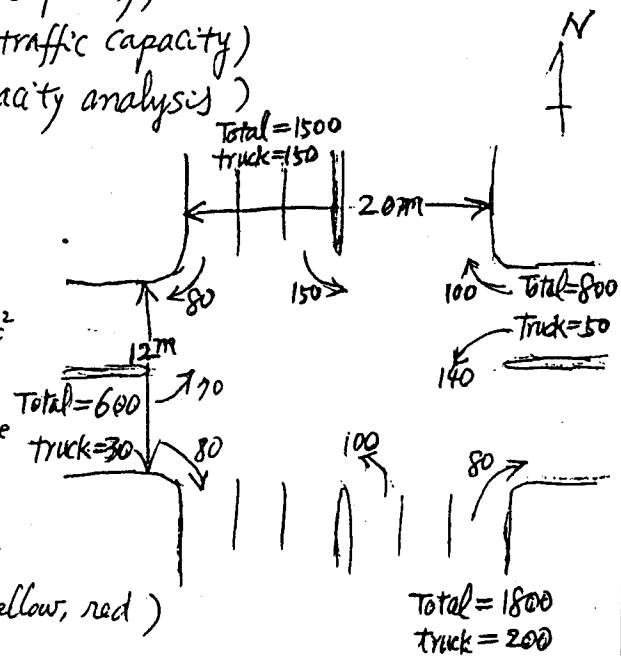 traffic capacity)
acity analysis)
N
Total=1500
truck=150
20m
80
150
100
Total=800
Truck=50
2
12m
140
Total=600
70
truck=30
80
100
80
ellow, red)
Total=1800
truck=200